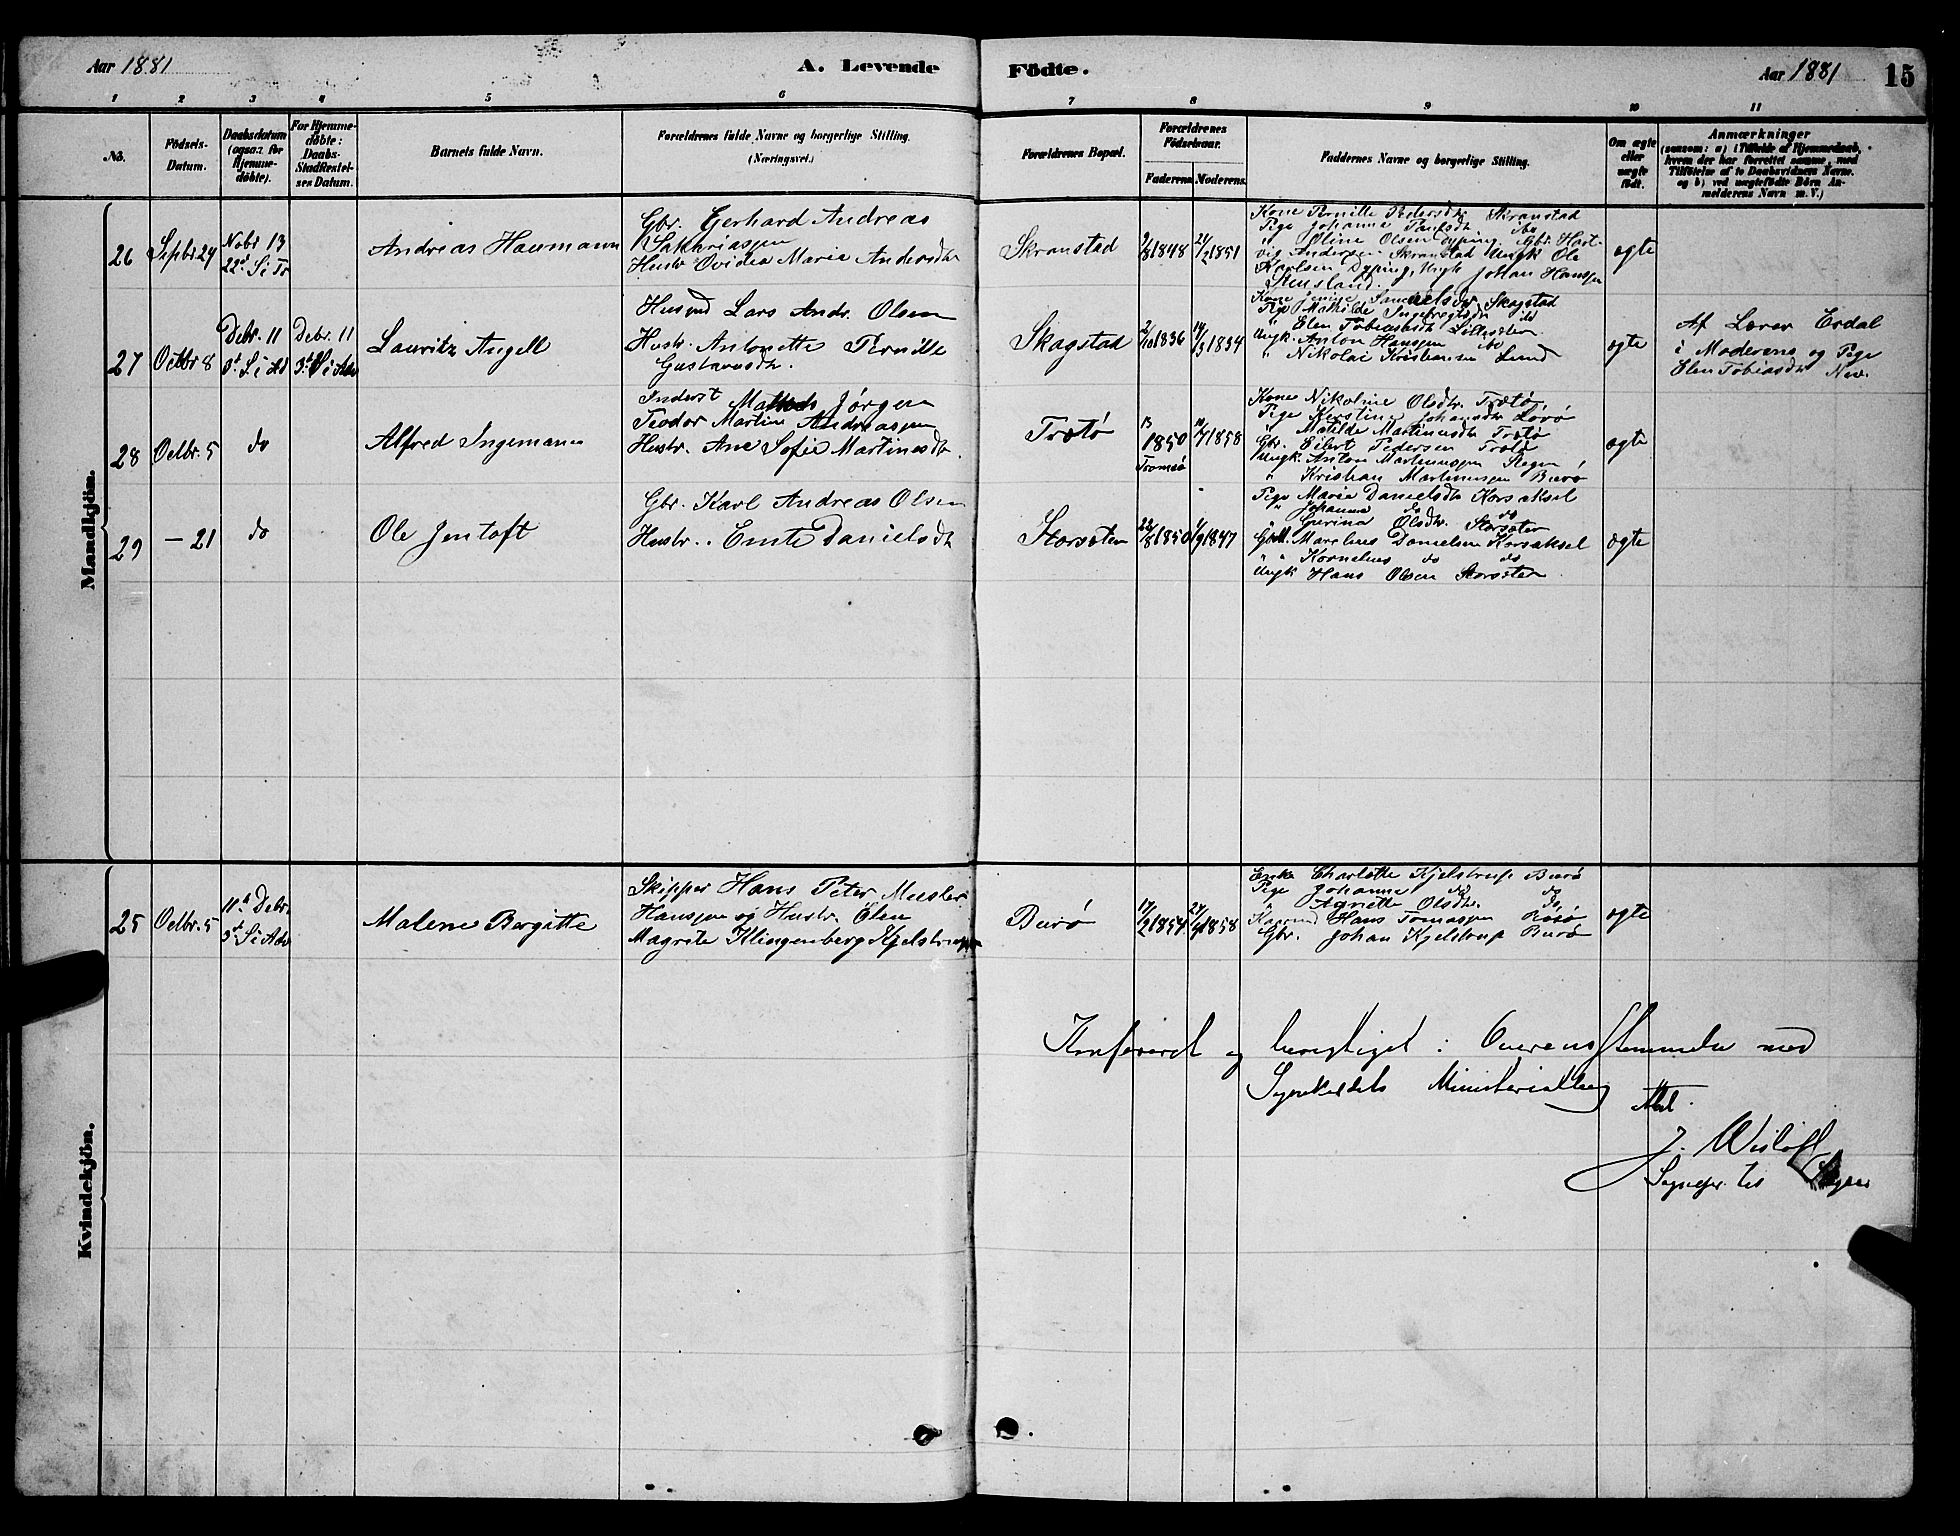 Aar 1881
A. Levende
Födte.
Aar 1881
15
1 2 3 4 5 6 7 8 9 10 11
No.
Födsels-
Datum.
Daabsdatum
(ogsaa for
Hjemme-
döbte).
For Hjemme-
döbte:
Daabs-
Stadfæstel-
ses Datum.
Barnets fulde Navn.
Forældrenes fulde Navne og borgerlige Stilling.
(Næringsvei.)
Forældrenes Bopæl.
Forældrenes
Födselsaar.
Faderens.
Moderens.
Faddernes Navne og borgerlige Stilling.
Om ægte
eller
uægte
födt.
Anmærkninger
(saasom: a) i Tilfælde af Hjemmedaab,
hvem der har forrettet samme, med
Tilföielse af to Daabsvidners Navne.
og b) ved uægtefödte Börn An-
melderens Navn m. V.)
Mandkjön.
26
Septbr 24
Nobr 13
22d S i Tr
Andreas Haumann
Gbr. Gerhard Andreas
Sakariasen
Hustr Ovidea Maria Andersdtr
Skranstad
1848
1851
Kone Pernille Pedersdtr. Skranstad
Pige Johanna Paulsdtr ibd
" Oline Olsen Dyping. Gbr. Hart-
vig Andersen Skranstad Ungk Ole
Karlsen Dyping, Ungk Johan Hansen
ægte
27
Octbr 8
Debr. 11
3d S i Ad
Debr. 11
3d S i Adv
Lauritz Angell
Husmd Lars Andr. Olsen
Hustr. Antonette Pernille
Gustavsdtr.
Skagstad
2/10 1836
14/3 1834
Kone Jenine Samuelsdtr Skagstad
Pige Mathilde Ingebregtsdtr do
" Elen Tobiasdtr
Ungk. Anton Hansen ibd
" Nikolai Kristiansen Lund
ægte
Af Lærer Erdal
i Moderens og Pige
Elen Tobiasdtr Nær.
28
Octbr. 5
do
Alfred Ingemann
Inderst Jørgen
Teodor Martin Andreasen
Hustr. Ane Sofie Martinusdtr.
Trotø
1850
Tromsø
1858
Kone Nikoline Olsdtr. Trotø
Pige Kerstine Johansdtr Lørø
" Matilde Martinusdtr Trotø
Gbr. Eilert Pedersen Trotø
Ungk. Anton Martinussen
" Kristian Martinussen Burø
ægte
29
— 21
do
Ole Jentoft
Gbr. Karl Andreas Olsen
Hustr. Emte Danielsdtr
Storsæten
22/8 1850
1/9 1847
Pige Maria Danielsdtr Korsaksel
" Johanna do do
" Gurina Olsdtr. Storsæten
Gbm. Marelius Danielsen Korsaksel
" " Kornelius do do
Ungk Hans Olsen Storsæten
ægte
Kvindekjön.
25
Octbr. 5
11te Debr.
3d S i Adv
Malene Bergitte
Skipper Hans Peter Meisler
Hansen og Hustr. Elen
Magrete Klingenberg Kjelstrup
Burø
1854
1858
Enke Charlotte Kjelstrup Burø
Pige Johanna do do
" Agnette Olsdtr. do,
Hans Tomassen
Gbr. Johan Kjelstrup Burø
ægte
Konfereret og berigtiget i Overensstemmelse med
Sognekaldets Ministerialbog
Attst.
J. Wisløff
Sognepr. til